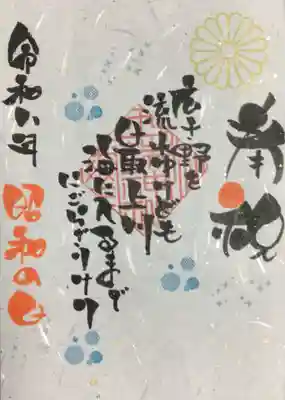 奉祝
広き野を
流れゆけども
最上川
海に入るまで
にごらざりけり
令和六年
昭和の日